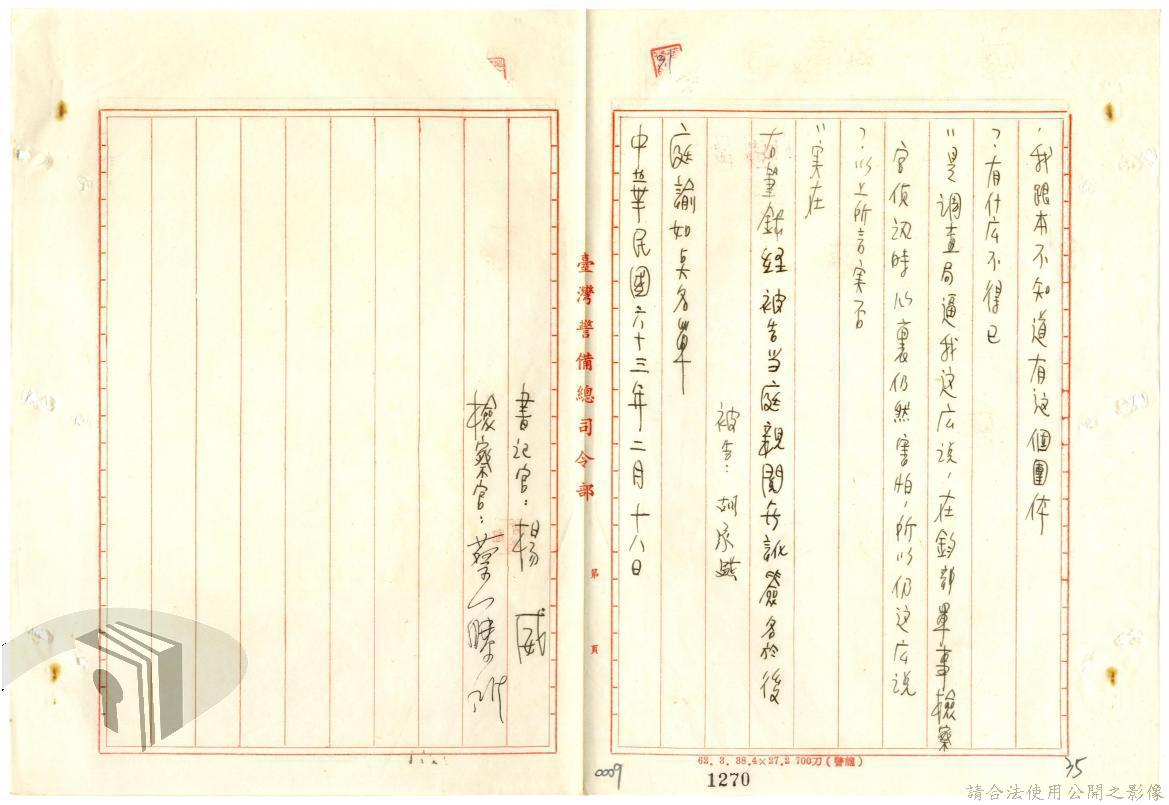 我跟本不知道有这個團体
？有什広不得已
〃是調查局逼我这広说，在鈞部軍事檢察
官偵訊時心裏仍然害怕，所以仍这広说
？以上所言実否
〃実在
右筆錄経被告当庭親閱無訛簽名於後
被告：胡
庭諭如点名單
中華民國六十三年二月十八日
臺灣警備總司令部
第
頁
書記官：楊 威
檢察官：蔡
62. 3. 38.4×27.2 700刀(警總)
0009
1270
35
請合法使用公開之影像